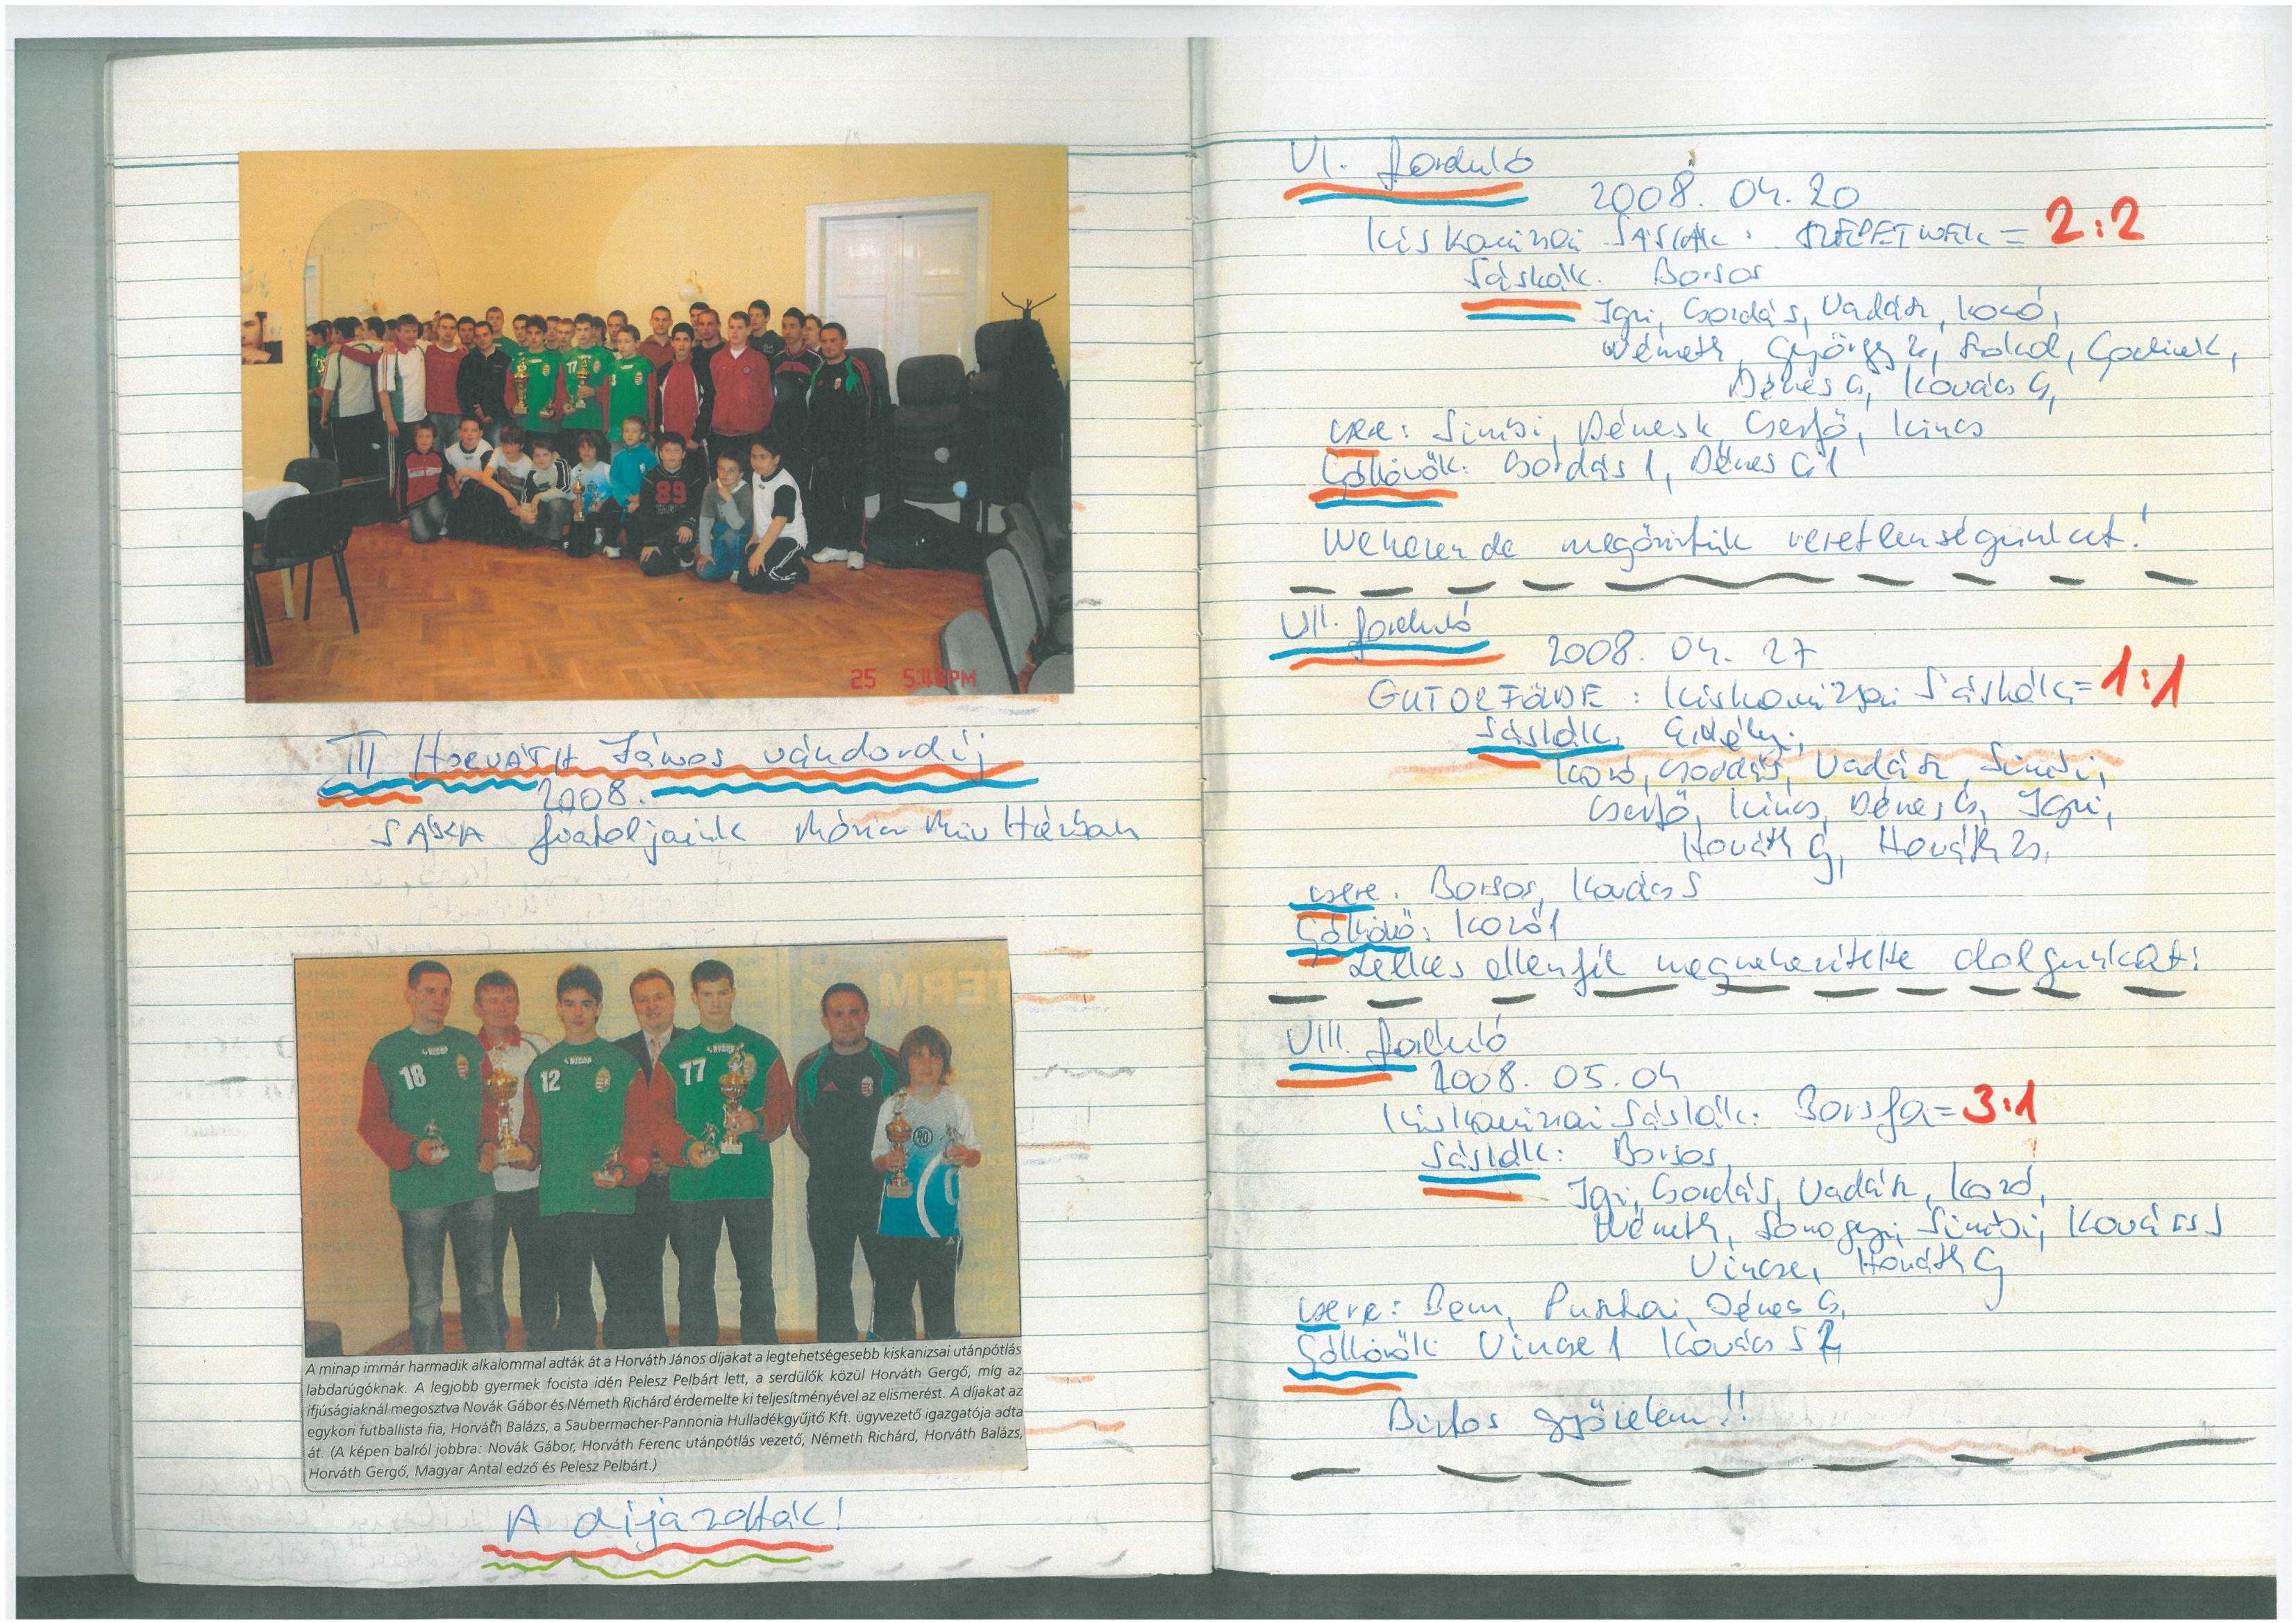 25 5:4 PM
III HORVÁTH János vándordíj
2008.
SÁSKA fiataljaink Móricz Műv Házban
18
12
77
TERM
A minap immár harmadik alkalommal adták át a Horváth János díjakat a legtehetségesebb kiskanizsai utánpótlás
labdarúgóknak. A legjobb gyermek focista idén Pelesz Pelbárt lett, a serdülők közül Horváth Gergő, míg az
ifjúságiaknál megosztva Novák Gábor és Németh Richárd érdemelte ki teljesítményével az elismerést. A díjakat az
egykori futballista fia, Horváth Balázs, a Saubermacher-Pannonia Hulladékgyűjtő Kft. ügyvezető igazgatója adta
át. (A képen balról jobbra: Novák Gábor, Horváth Ferenc utánpótlás vezető, Németh Richárd, Horváth Balázs,
Horváth Gergő, Magyar Antal edző és Pelesz Pelbárt.)
A díjazottak!
VI. forduló
2008. 04. 20
Kiskanizsai SÁSKÁK : SZEPETNEK = 2:2
Sáskák. Borsos
Igri, Csordás, Vadász, Kozó,
Németh, György Z, Sokol, Godinek,
Dénes G, Kovács G,
csere: Simbi, Dénes K, Cserfő, Kincs
Góllövők: Csordás 1, Dénes G 1
Nehezen de megőriztük veretlenségünket!
VII. forduló
2008. 04. 27
GUTORFÖLDE : Kiskanizsai Sáskák = 1:1
Sáskák. Erdélyi,
Kozó, Csordás, Vadász, Simbi,
Cserfő, Kincs, Dénes G, Igri,
Horváth G, Horváth Zs,
csere. Borsos, Kovács S
Góllövő: Kozó 1
Lelkes ellenfél megnehezítette dolgunkat!
VIII. forduló
2008. 05. 04
Kiskanizsai Sáskák: Borsfa = 3:1
Sáskák: Borsos,
Igri, Csordás, Vadász, Kozó,
Németh, Somogyi, Simbi, Kovács S
Vincze, Horváth G
csere: Bem, Puskai, Dénes G,
Góllövők: Vincze 1 Kovács S 2
Biztos győzelem!!